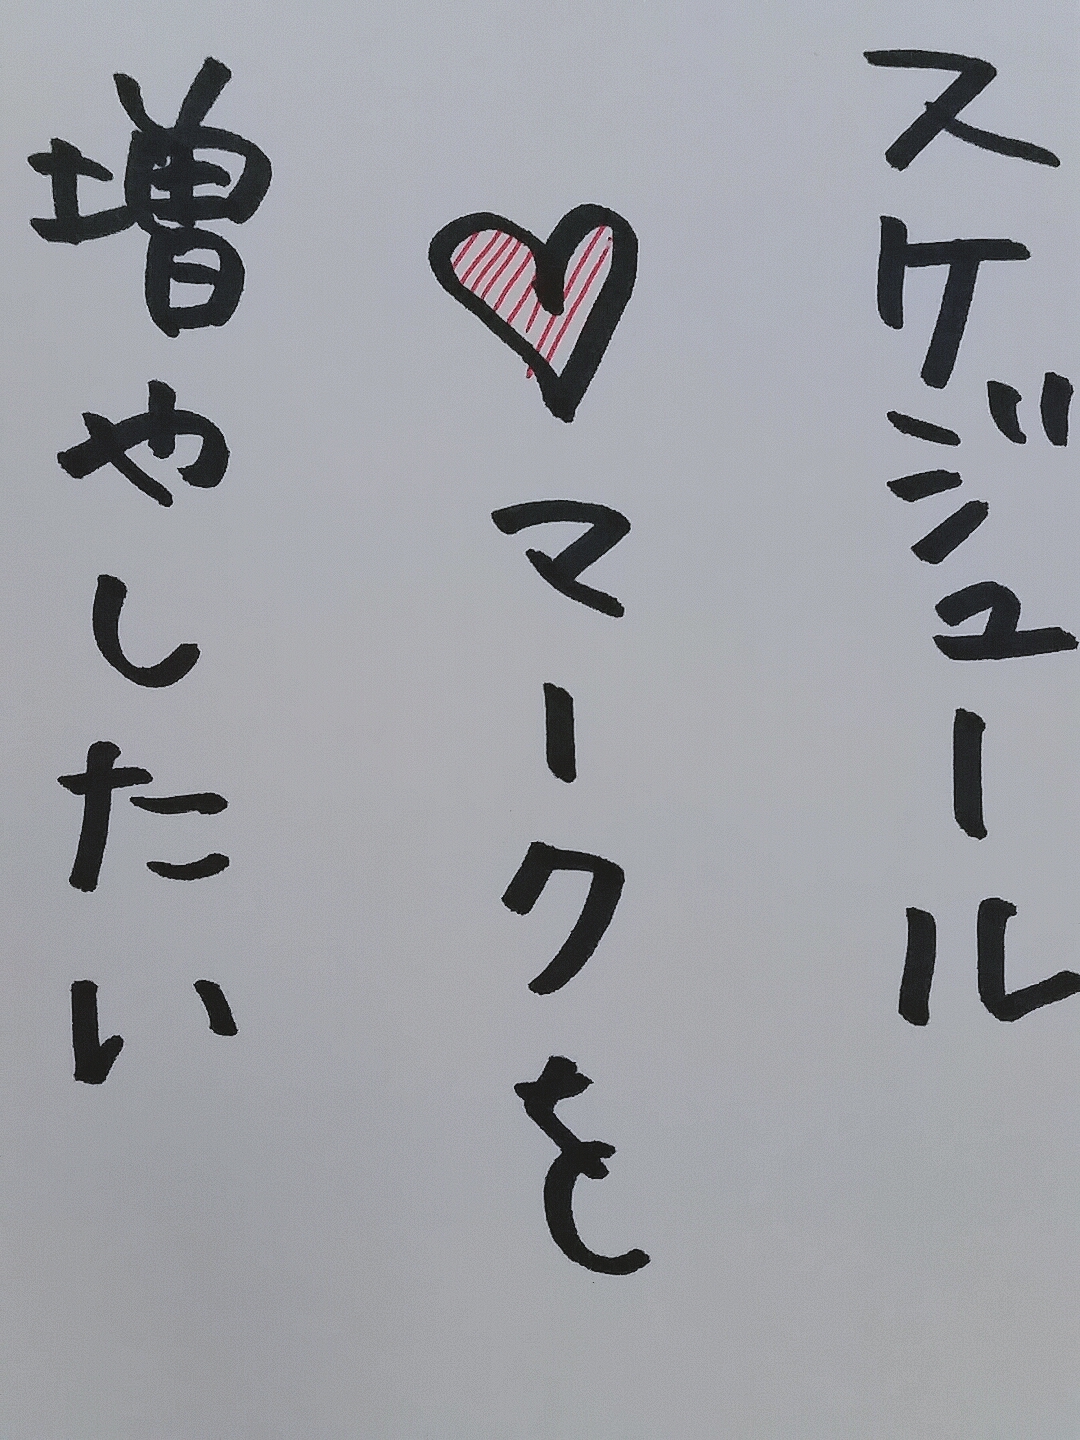 スケジュール
♥マークを
増やしたい